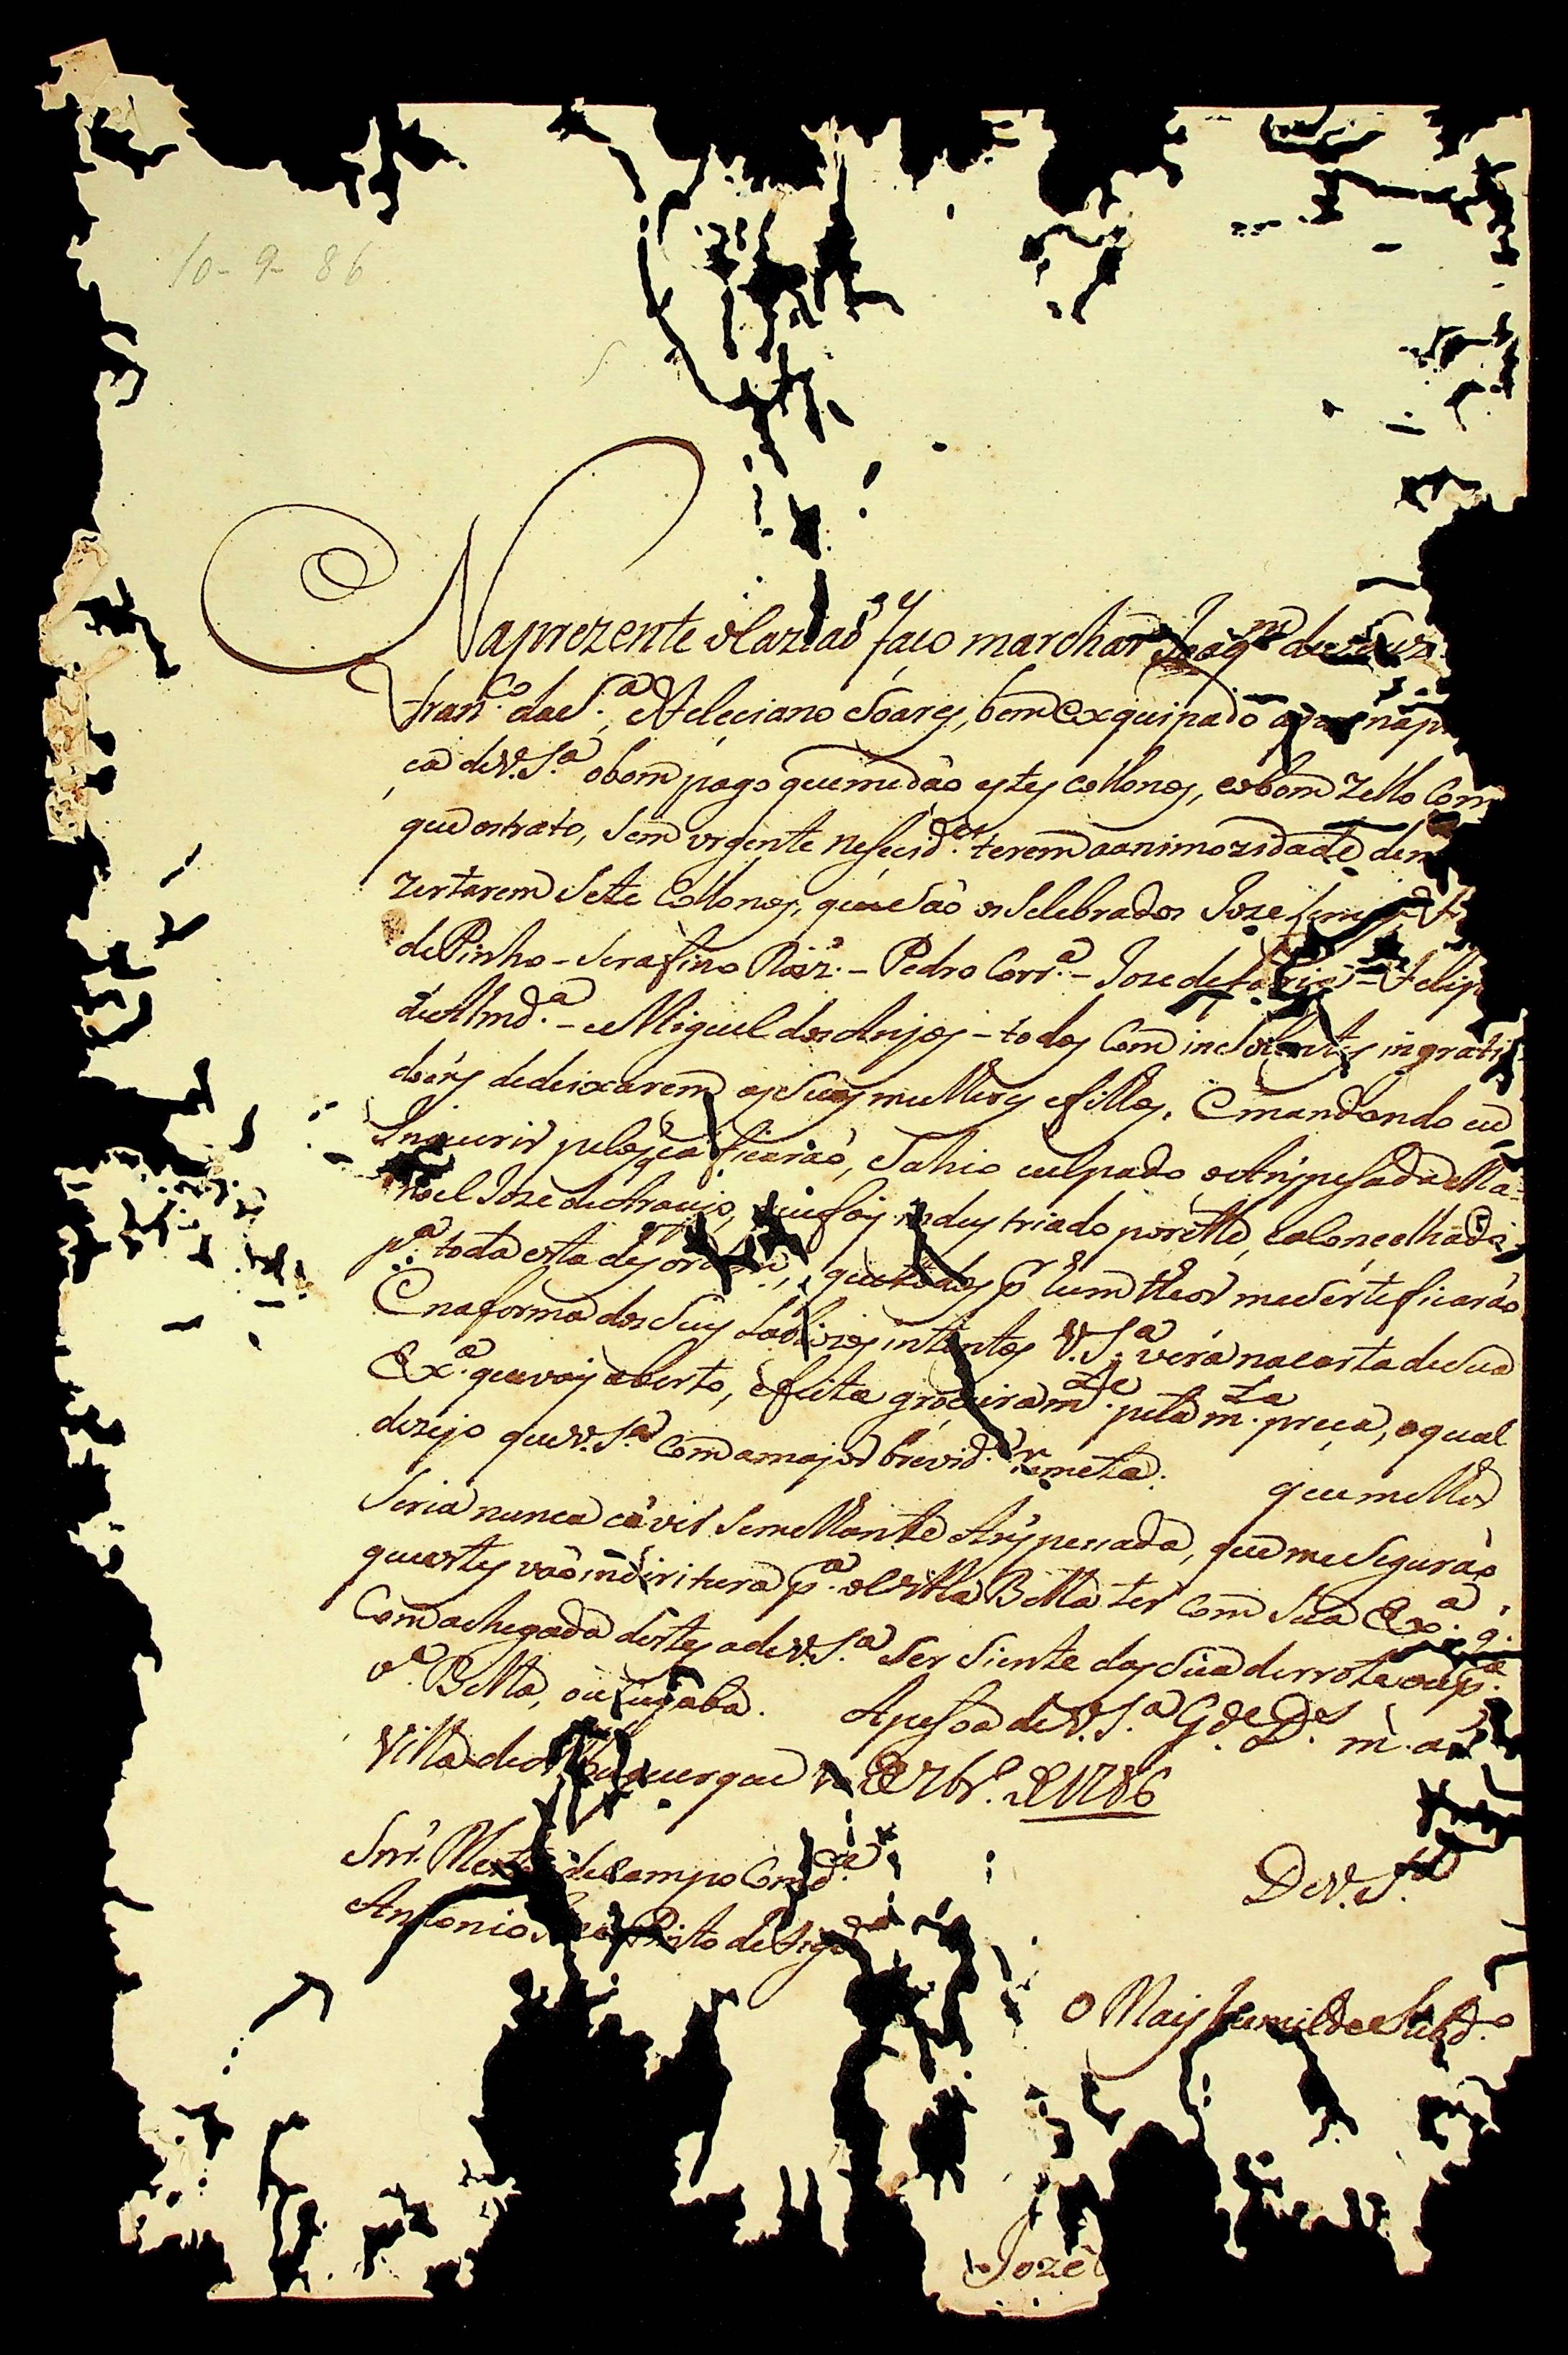 10-9-86
Na prezente ocaziaõ faço marchar Joaq.m de Souz
Fran.co da S.a, e Feleciano Soares, bem exquipado
ca de V. S.a o bom pago que me daõ estes collonos, e o bom zello com
que os trato, sem vrgente nesecid.es terem a animozidade de
zertarem sete Collonos, que saõ os selebrados Joze
de Pinho - Serafino Roiz' - Pedro Corr.a - Joze de Faria - Felip
de Almd.a - e Miguel dos Anjos - todos com insolentes ingrati
doins de deixarem as suas mulheres e filhos. E mandando eu
Inquirir pellos q' ca ficaraõ, Sahio culpado o Anspesada Ma=
noel Joze de Araujo, que foi industriado por elle, e alconcelhados
p.a toda esta desordem, que todos p.r hum theor me serteficaraõ
E na forma dos seus intentos V. S.a verá na carta de sua
Ex.a que vay aberto, e feita groceiram.te pella m.ta preça, o qual
dezejo que V. S.a com a mayor brevid.e remeta. que melhor
seria nunca cá vir semelhante Anspessada, que me seguraõ
que estes vaõ em diritura p.a Villa Bella ter com sua Ex.a q.
com a chegada destes a de V. S.a ser siente da sua derrota ou p.a
V.a Bella, ou Cuyaba. A pesoa de V. S.a G.de D.s m. a.
Villa de Albuquerque de 7br.o de 1786
Snr. Mestre de Campo Comd.e
Antonio Joze Pinto de Figd.o
De V. S.a
O Mais humilde e Subd.o
Joze